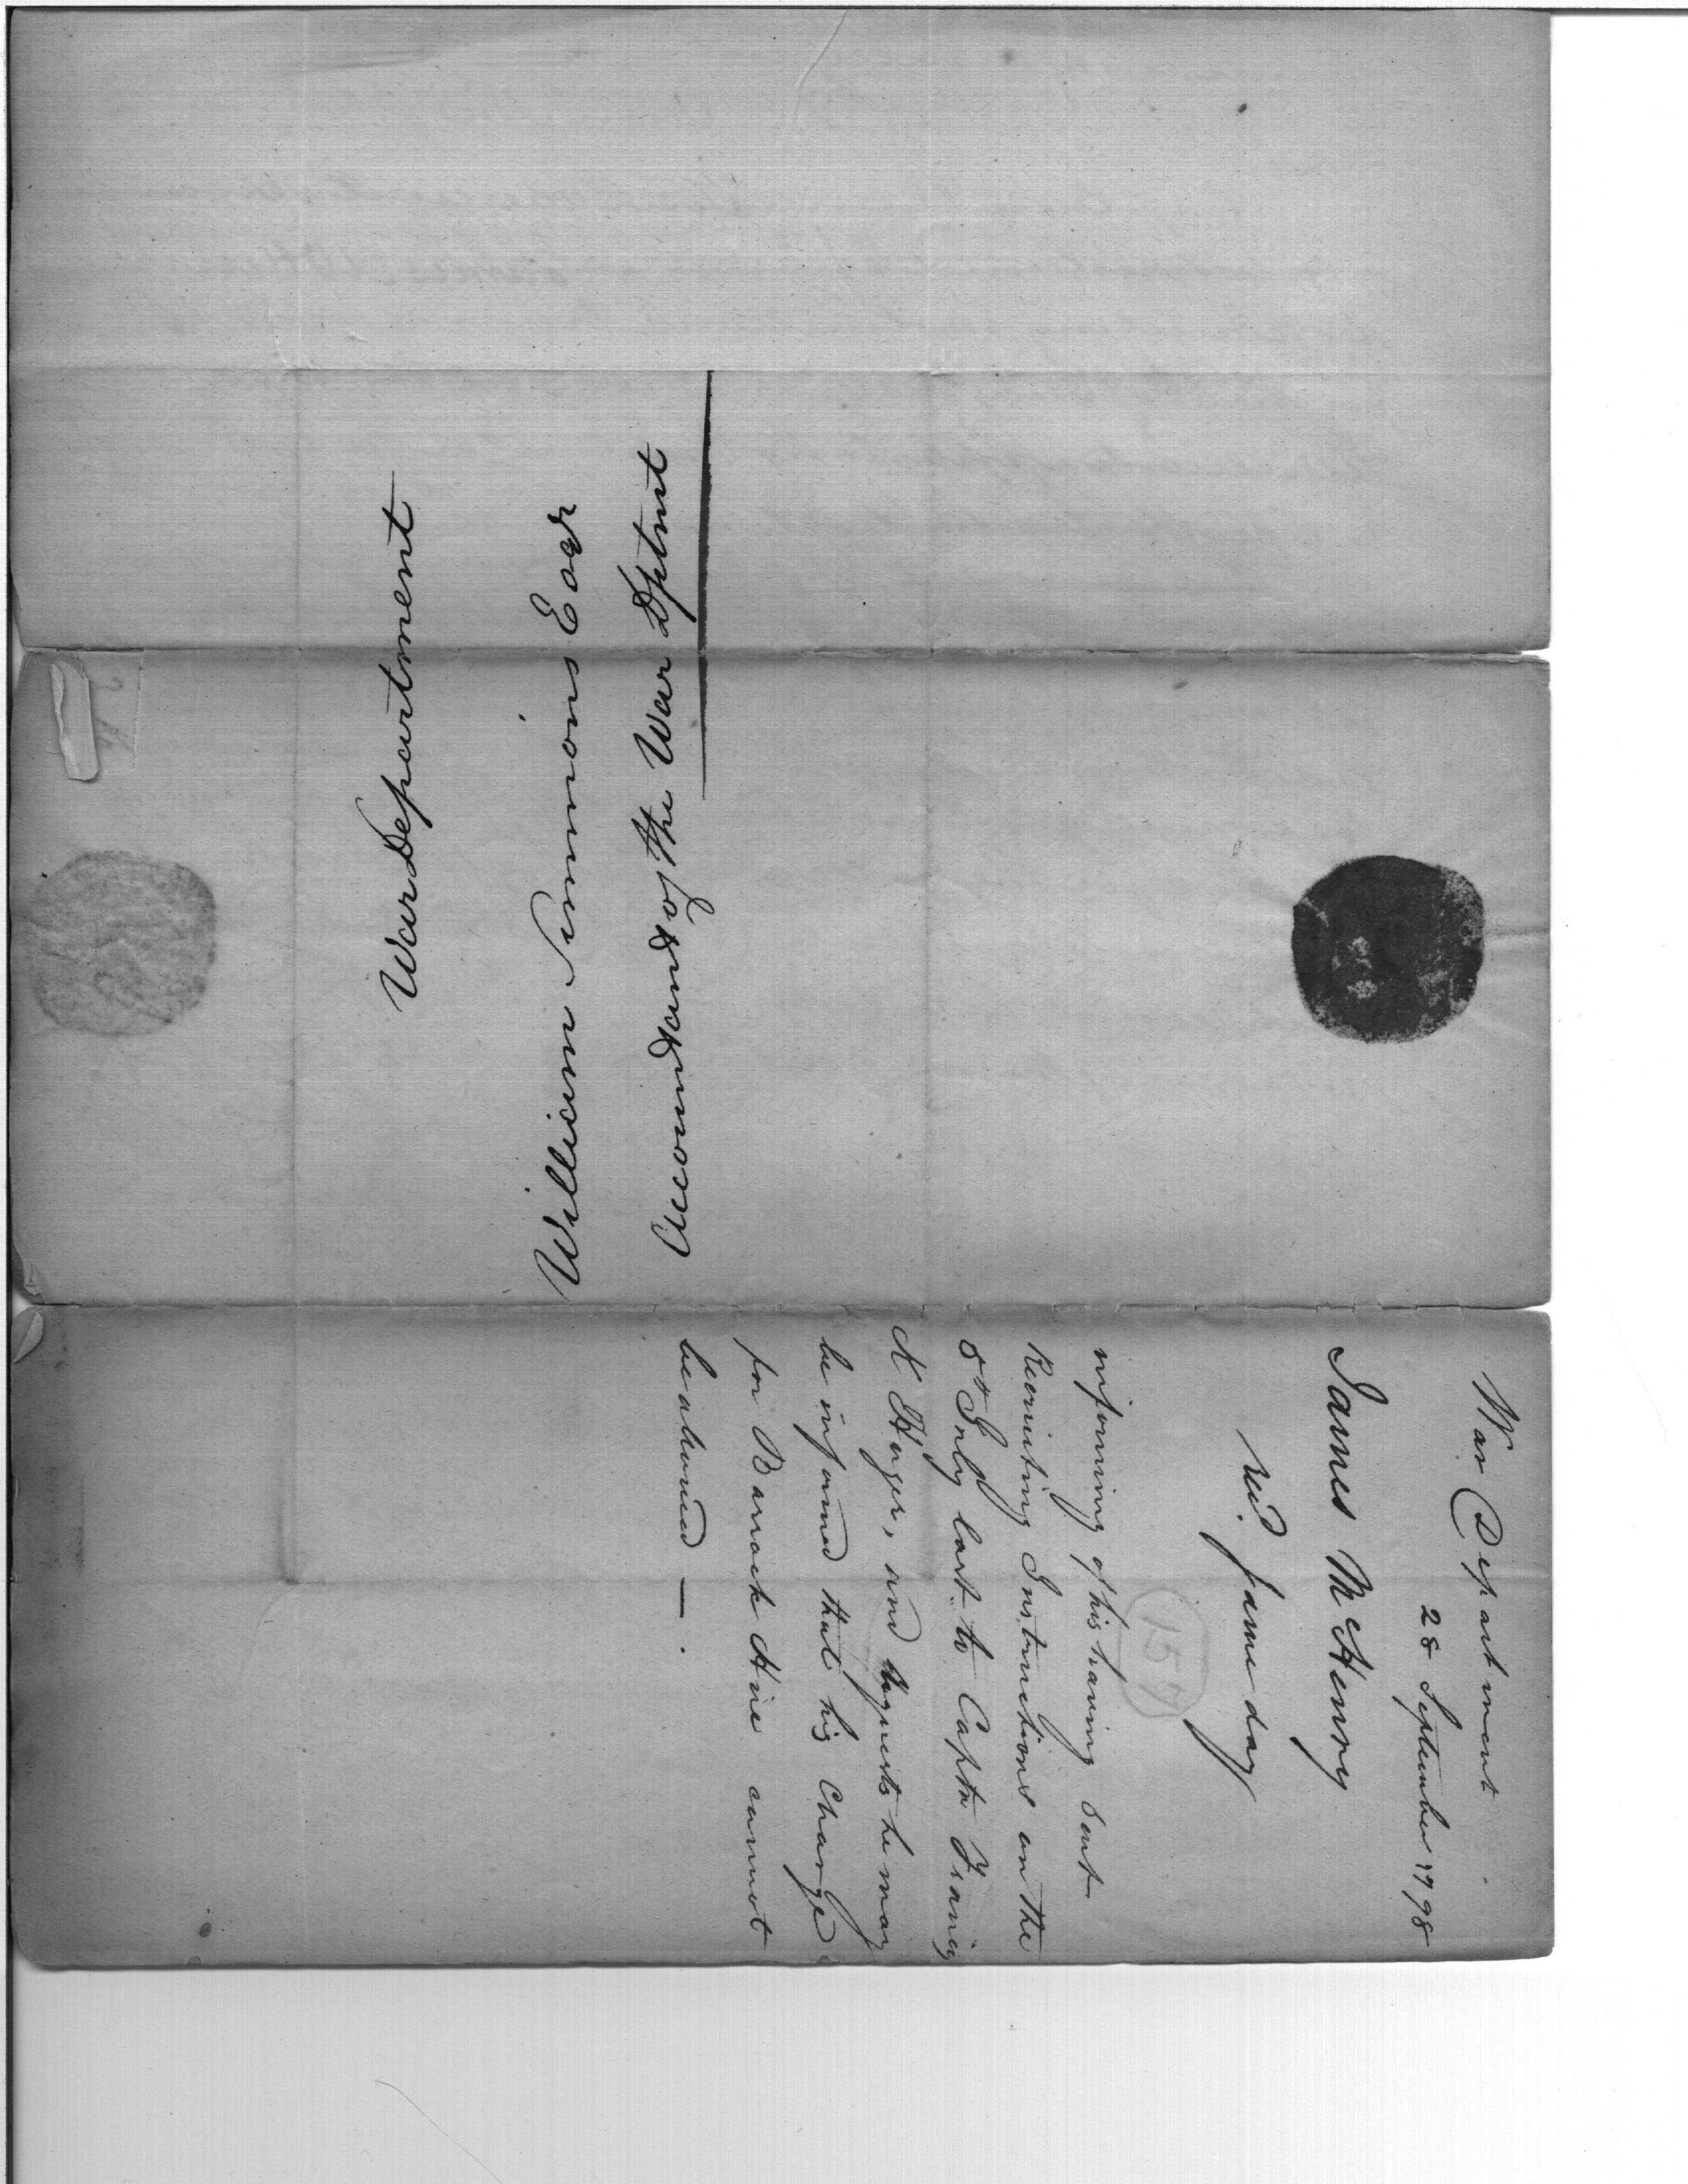 War Department
William Simmons Esqr
Accountant of the War Dptmt
War Department.
28 September 1798
James McHenry
recd. same day
157
informing of his having sent
Recruiting Instructions on the
5th July last to Captn Francis
K Huger, and requests he may
be informed that his Charge
for Barrack Hire cannot
be allowed —.